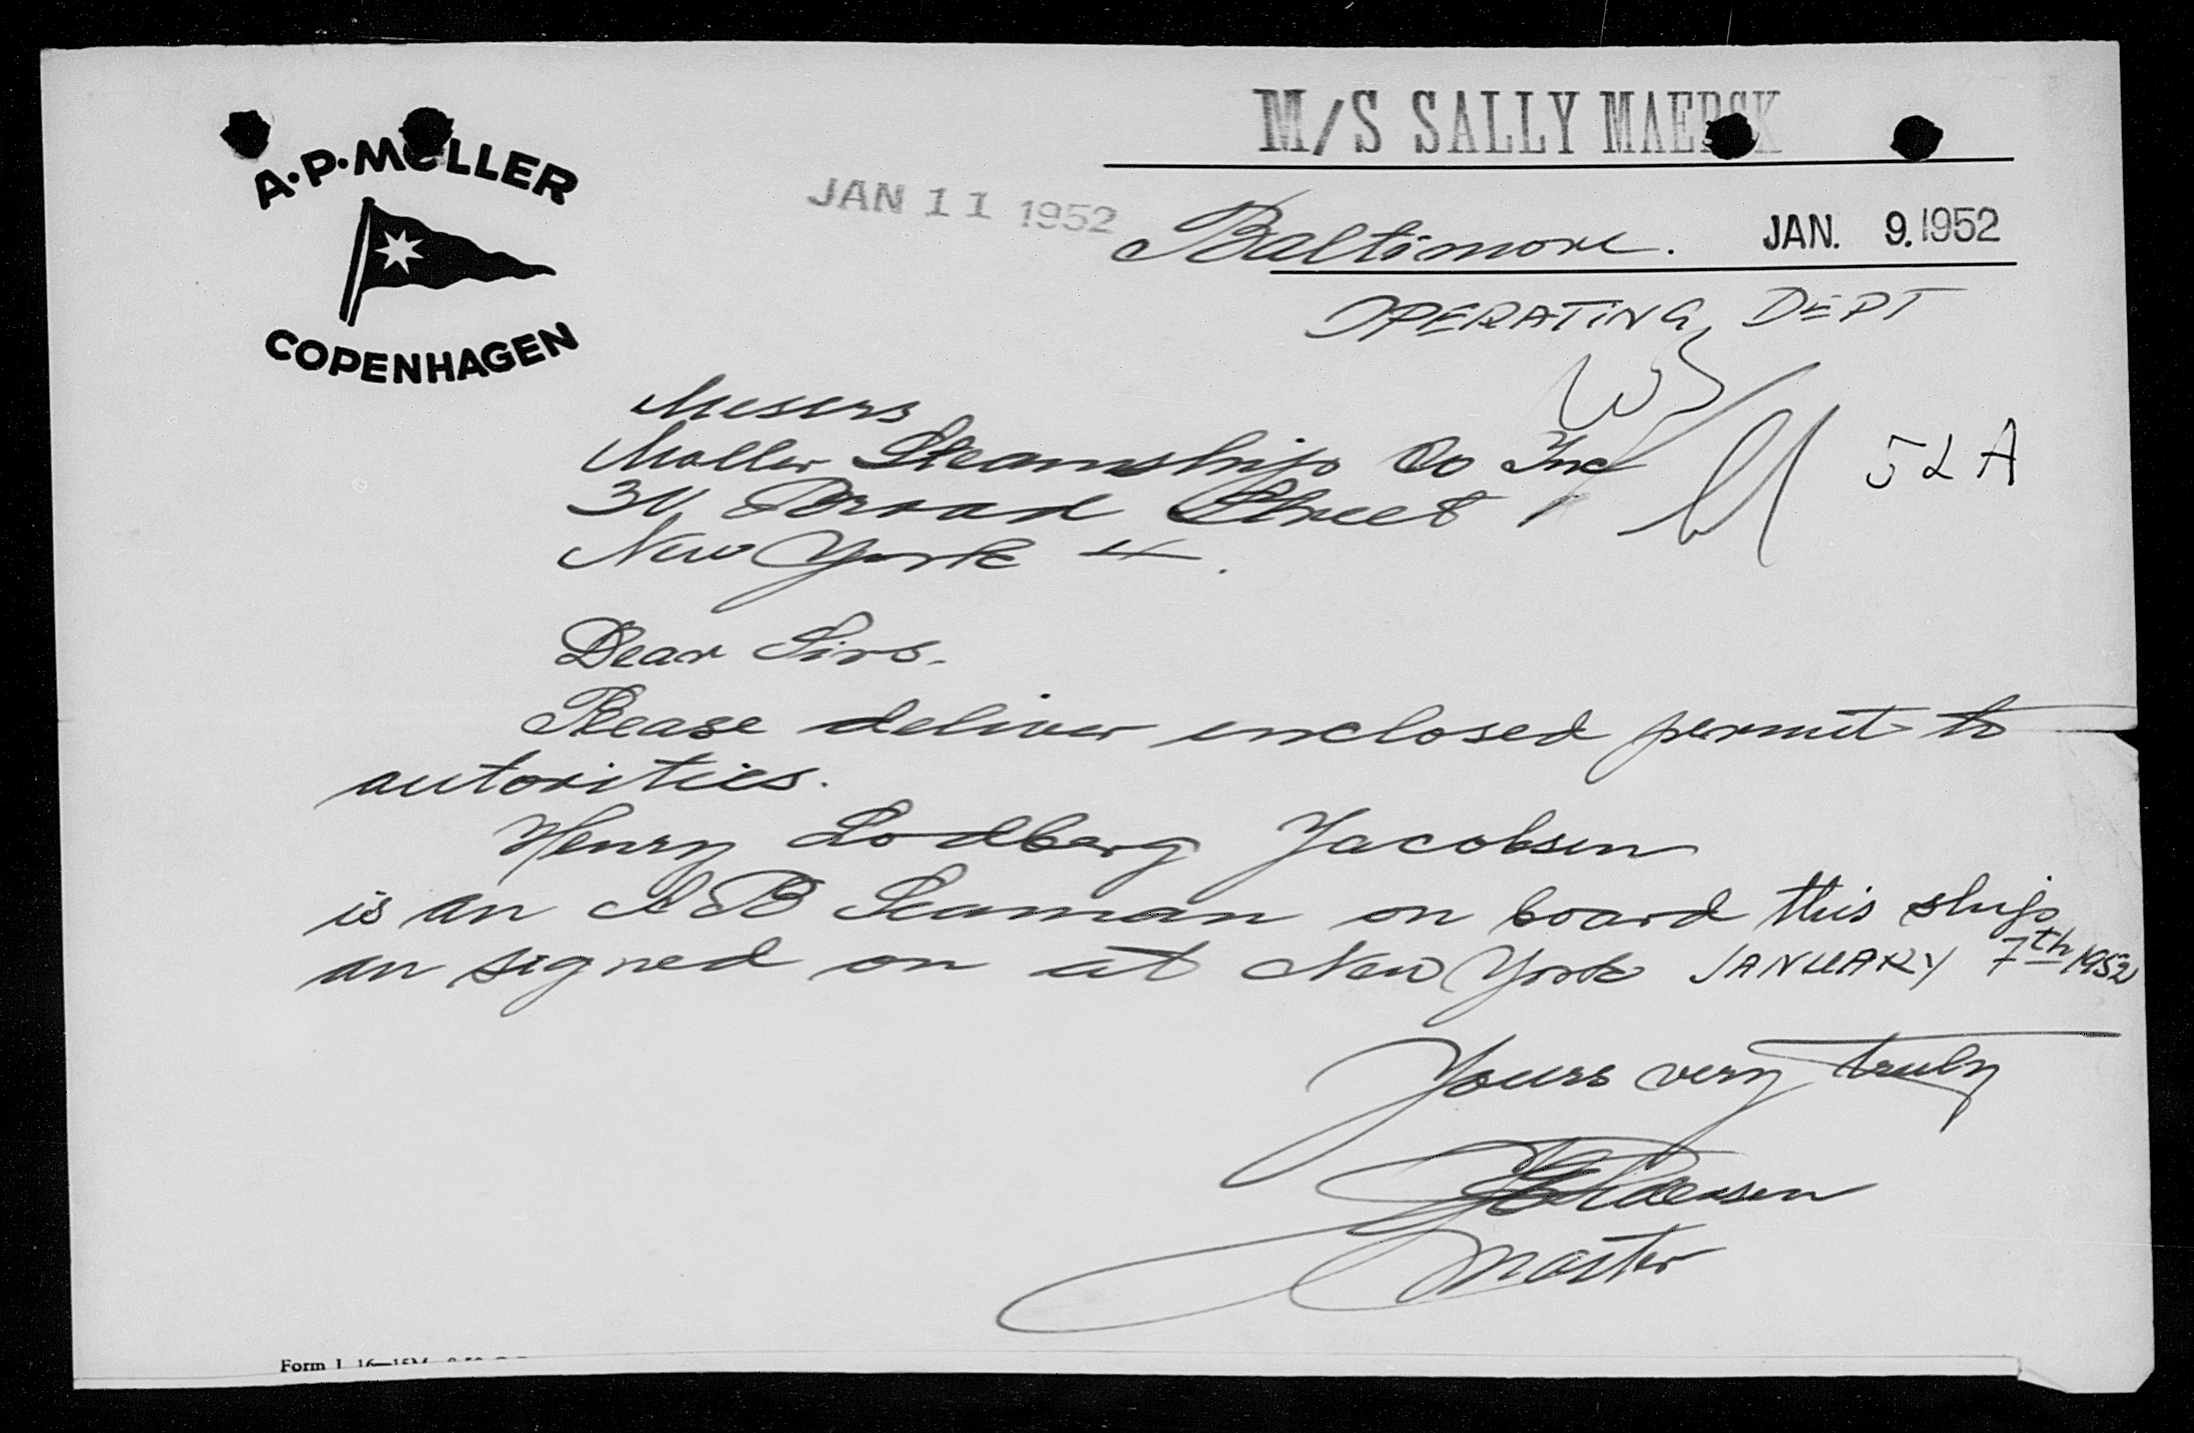 A·P·MOLLER
COPENHAGEN
M/S SALLY MAERSK
JAN 11 1952
Baltimore. JAN. 9. 1952
OPERATING DEPT
52 A
Messrs
Moller Steamship Co Inc
Broad Street
New York 4.
Dear Sirs.
Please deliver enclosed permit to
autorities.
Henry Lodberg Jacobsen
is an AB Seaman on board this ship
an signed on at New York JANUARY 7th 1952
Yours very truly
Master
Form